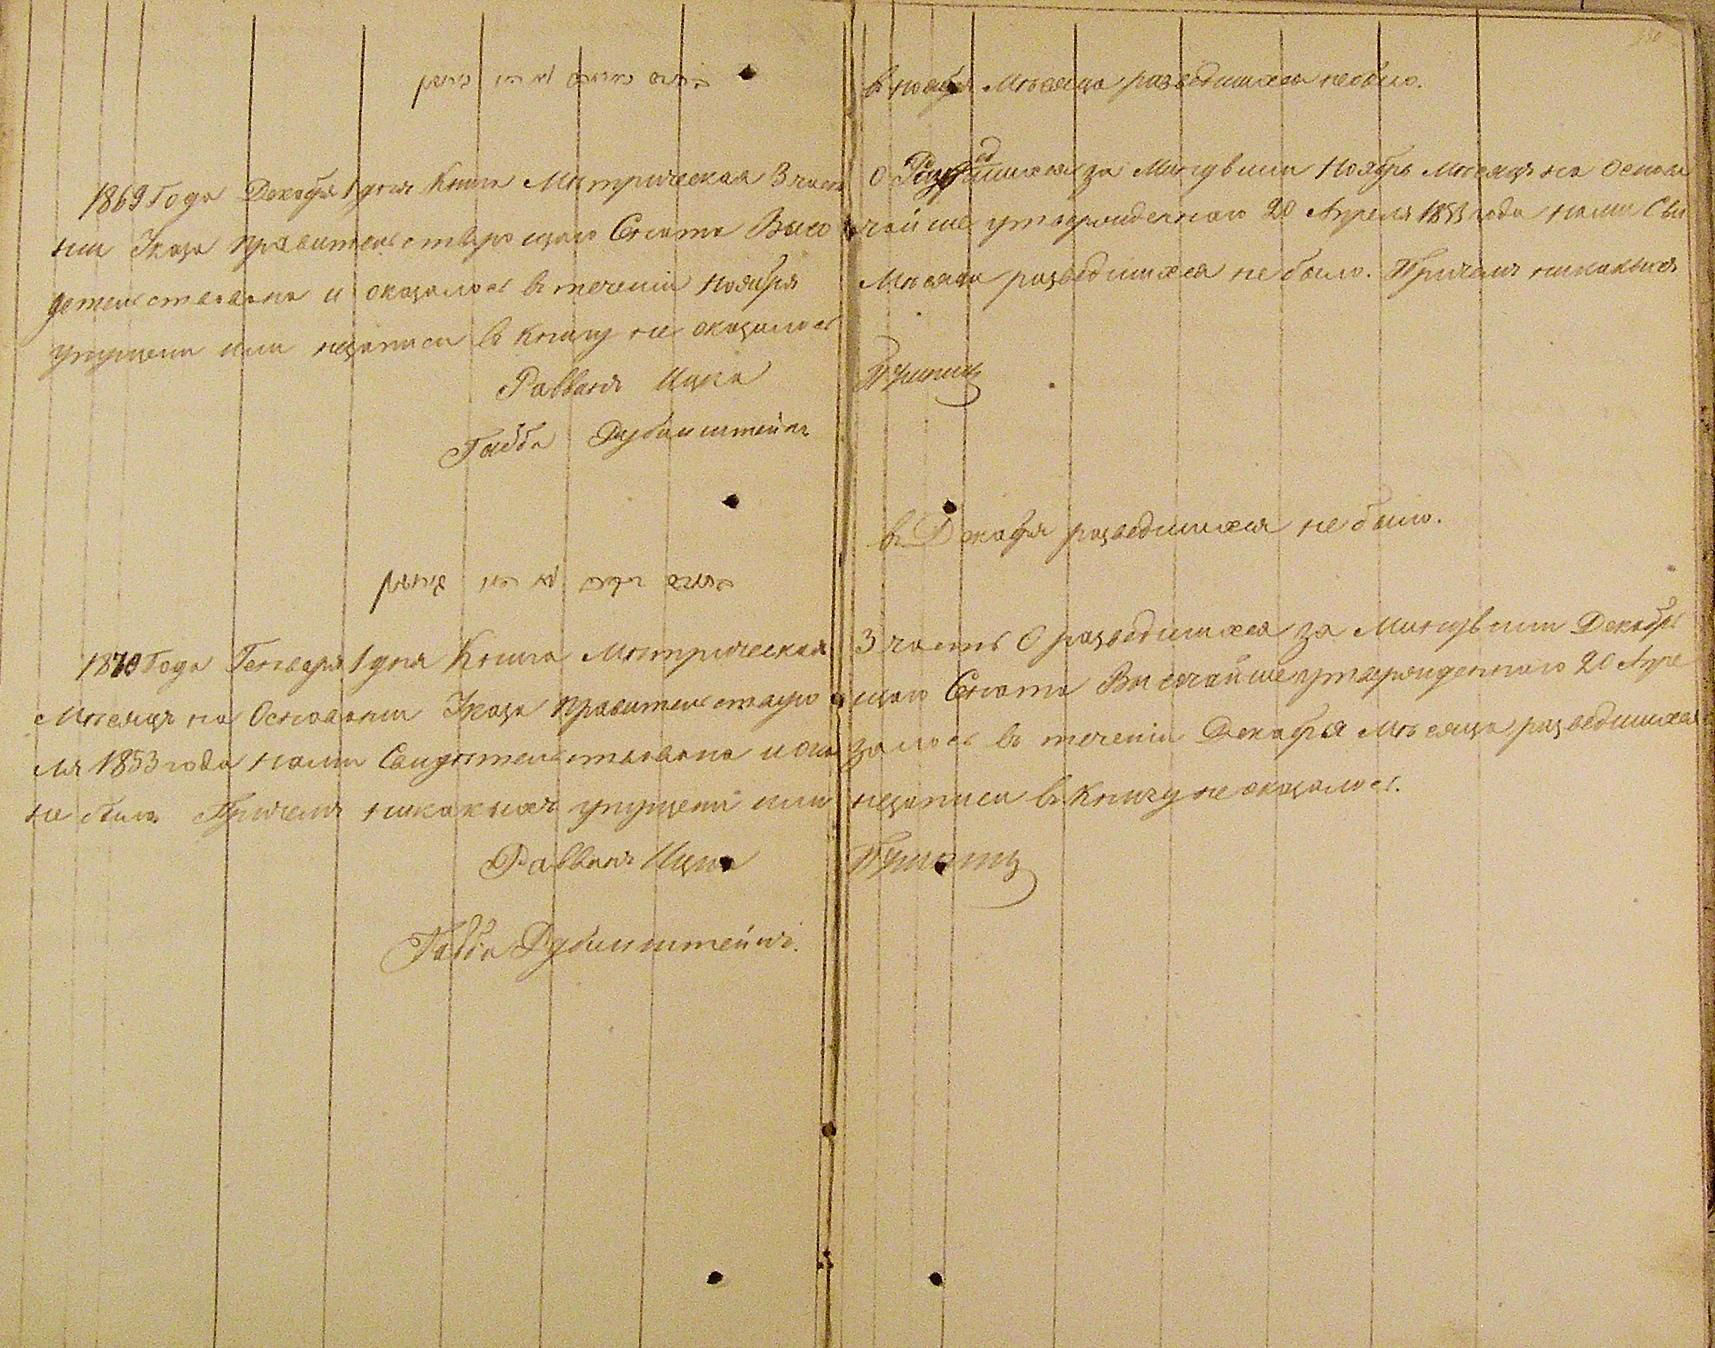 в ноября Мѣсяца разведшихся небыло.
1869 Года Декабря 1 дня Книга Метрическая 3 часть О Разведшихся за Минувшии Ноябрь Мѣсяцъ на Основа
нии Указа Правительствующаго Сената Высо чайше утвержденнаго 20 Апреля 1853 года нами Сви
детельствована и оказалось в течении ноября Мѣсяца разведшихся не было. Причемъ никакихъ
упущении или незаписи в Книгу не оказалось
Раввинъ Ицка
Габба Рубинштейнъ
в Декабря разведшихся не было.
1870 Года Генваря 1 дня Книга Метрическая 3 часть О разведшихся за Минувшии Декабрь
Мѣсяцъ на Основании Указа Правительствую щаго Сената Высочайше утвержденнаго 20 Апре
ля 1853 года нами Свидѣтельствована и ока залось въ течении Декабря Мѣсяца разведшихся
не было Причемъ никакихъ упущений или незаписи в Книгу не оказалось.
Раввинъ Ицка
Габба Рубинштейнъ.